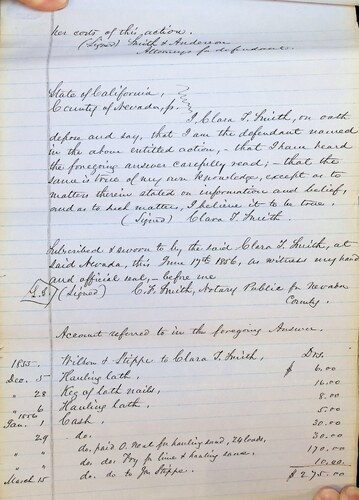 her costs of this action.
(Signed) Smith & Anderson
Attorneys for defendance.
State of California,
County of Nevada, ss.
I, Clara T. Smith, on oath
depose and say, that I am the defendant named
in the above entitled action, - that I have heard
the foregoing answer carefully read; - that the
same is true of my own knowledge, except as to
matters therein stated on information and belief;
and as to such matters, I believe it to be true.
(Signed) Clara T. Smith.
Subscribed & sworn to by the said Clara T. Smith, at
said Nevada, this June 17th 1856, as witness my hand
and official seal, - before me
(Signed) C. F. Smith, Notary Public for Nevada
County.
Account referred to in the foregoing Answer.
1855. Wilson & Steppe to Clara T. Smith, Drs.
Dec. 5 Hauling lath, $ 6.00
" 28 Keg of lath nails, 16.00
" 6 Hauling lath, 8.00
1856
Jan. 1 Cash, 5.00
" 29 do. 30.00
" " do. paid O. Neal for hauling sand, 26 loads, 30.00
" " do. do. Foy for lime & hauling same. 170.00
March 15 do. do. to Jon Steppe. 10.00
$ 275.00